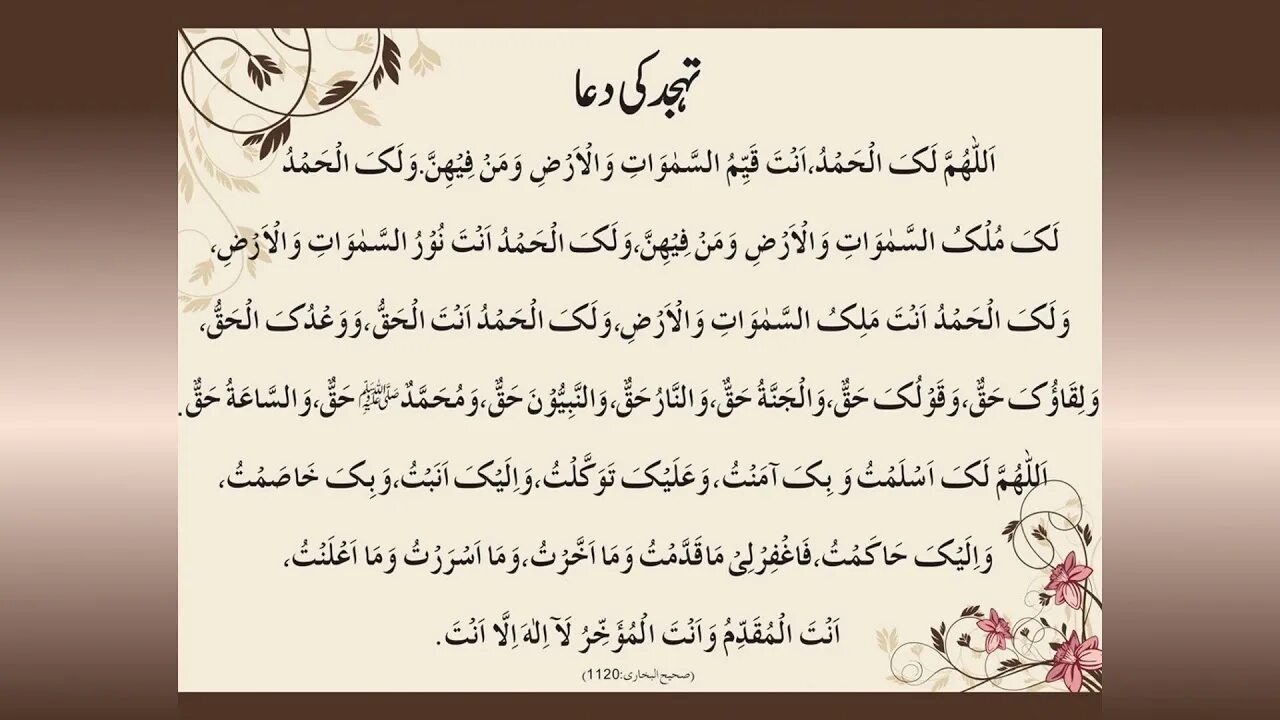 تہجد کی دعا
اَللّٰهُمَّ لَکَ الْحَمْدُ،اَنْتَ قَیِّمُ السَّمٰوَاتِ وَالْاَرْضِ وَمَنْ فِیْهِنَّ.وَلَکَ الْحَمْدُ
لَکَ مُلْکُ السَّمٰوَاتِ وَالْاَرْضِ وَمَنْ فِیْهِنَّ،وَلَکَ الْحَمْدُ اَنْتَ نُوْرُ السَّمٰوَاتِ وَالْاَرْضِ،
وَلَکَ الْحَمْدُ اَنْتَ مَلِکُ السَّمٰوَاتِ وَالْاَرْضِ،وَلَکَ الْحَمْدُ اَنْتَ الْحَقُّ،وَوَعْدُکَ الْحَقُّ،
وَلِقَاؤُکَ حَقٌّ،وَقَوْلُکَ حَقٌّ،وَالْجَنَّةُ حَقٌّ،وَالنَّارُ حَقٌّ،وَالنَّبِیُّوْنَ حَقٌّ،وَمُحَمَّدٌ ﷺ حَقٌّ،وَالسَّاعَةُ حَقٌّ.
اَللّٰهُمَّ لَکَ اَسْلَمْتُ وَ بِکَ آمَنْتُ،وَعَلَیْکَ تَوَکَّلْتُ،وَاِلَیْکَ اَنَبْتُ،وَبِکَ خَاصَمْتُ،
وَاِلَیْکَ حَاکَمْتُ،فَاغْفِرْلِیْ مَاقَدَّمْتُ وَمَا اَخَّرْتُ،وَمَا اَسْرَرْتُ وَمَا اَعْلَنْتُ،
اَنْتَ الْمُقَدِّمُ وَاَنْتَ الْمُؤَخِّرُ لَآ اِلٰهَ اِلَّا اَنْتَ.
(صحیح البخاری:1120)